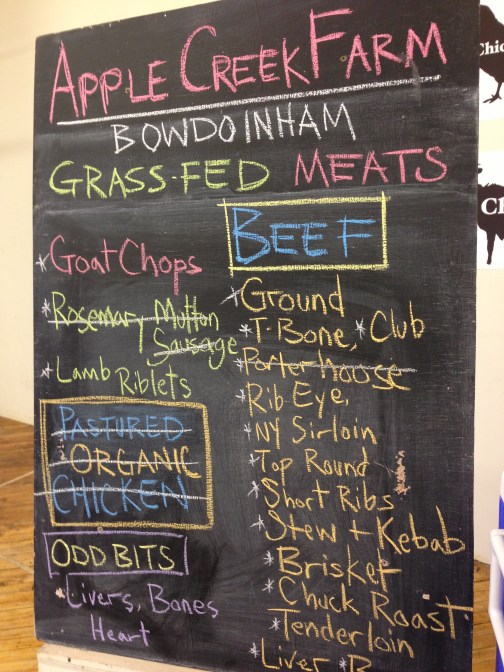 APPLE CREEK FARM
BOWDOINHAM
GRASS-FED MEATS
* Goat Chops
* Rosemary Mutton
Sausage
* Lamb Riblets
PASTURED
ORGANIC
CHICKEN
ODD BITS
* Livers, Bones
Heart
BEEF
* Ground
* T-Bone, * Club
* Porterhouse
* Rib Eye,
* NY Sirloin
* Top Round
* Short Ribs
* Stew + Kebab
* Brisket
* Chuck Roast
* Tenderloin
* Liver
Chic
Ch